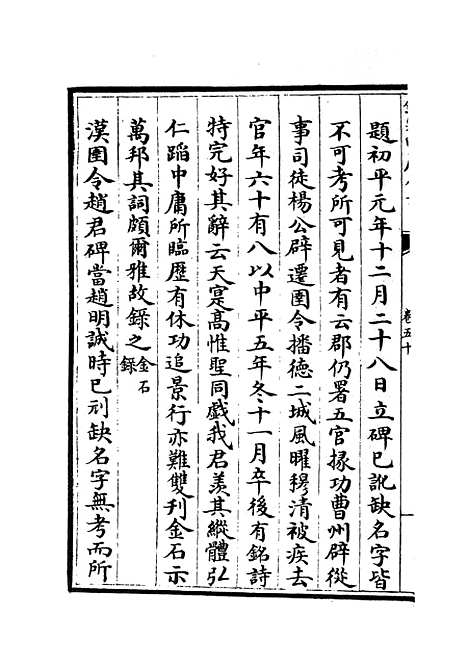 題初平元年十二月二十八日立碑已訛缺名字皆
不可考所可見者有云郡仍署五官掾功曹州辟從
事司徒楊公辟遷圉令播德二城風曜穆清被疾去
官年六十有八以中平五年冬十一月卒後有銘詩
特完好其辭云天寔高惟聖同戲我君羨其縱體弘
仁蹈中庸所臨歷有休功追景行亦難雙刋金石示
萬邦其詞頗爾雅故錄之金石錄
漢圉令趙君碑當趙明誠時已刓缺名字無考而所
卷五十